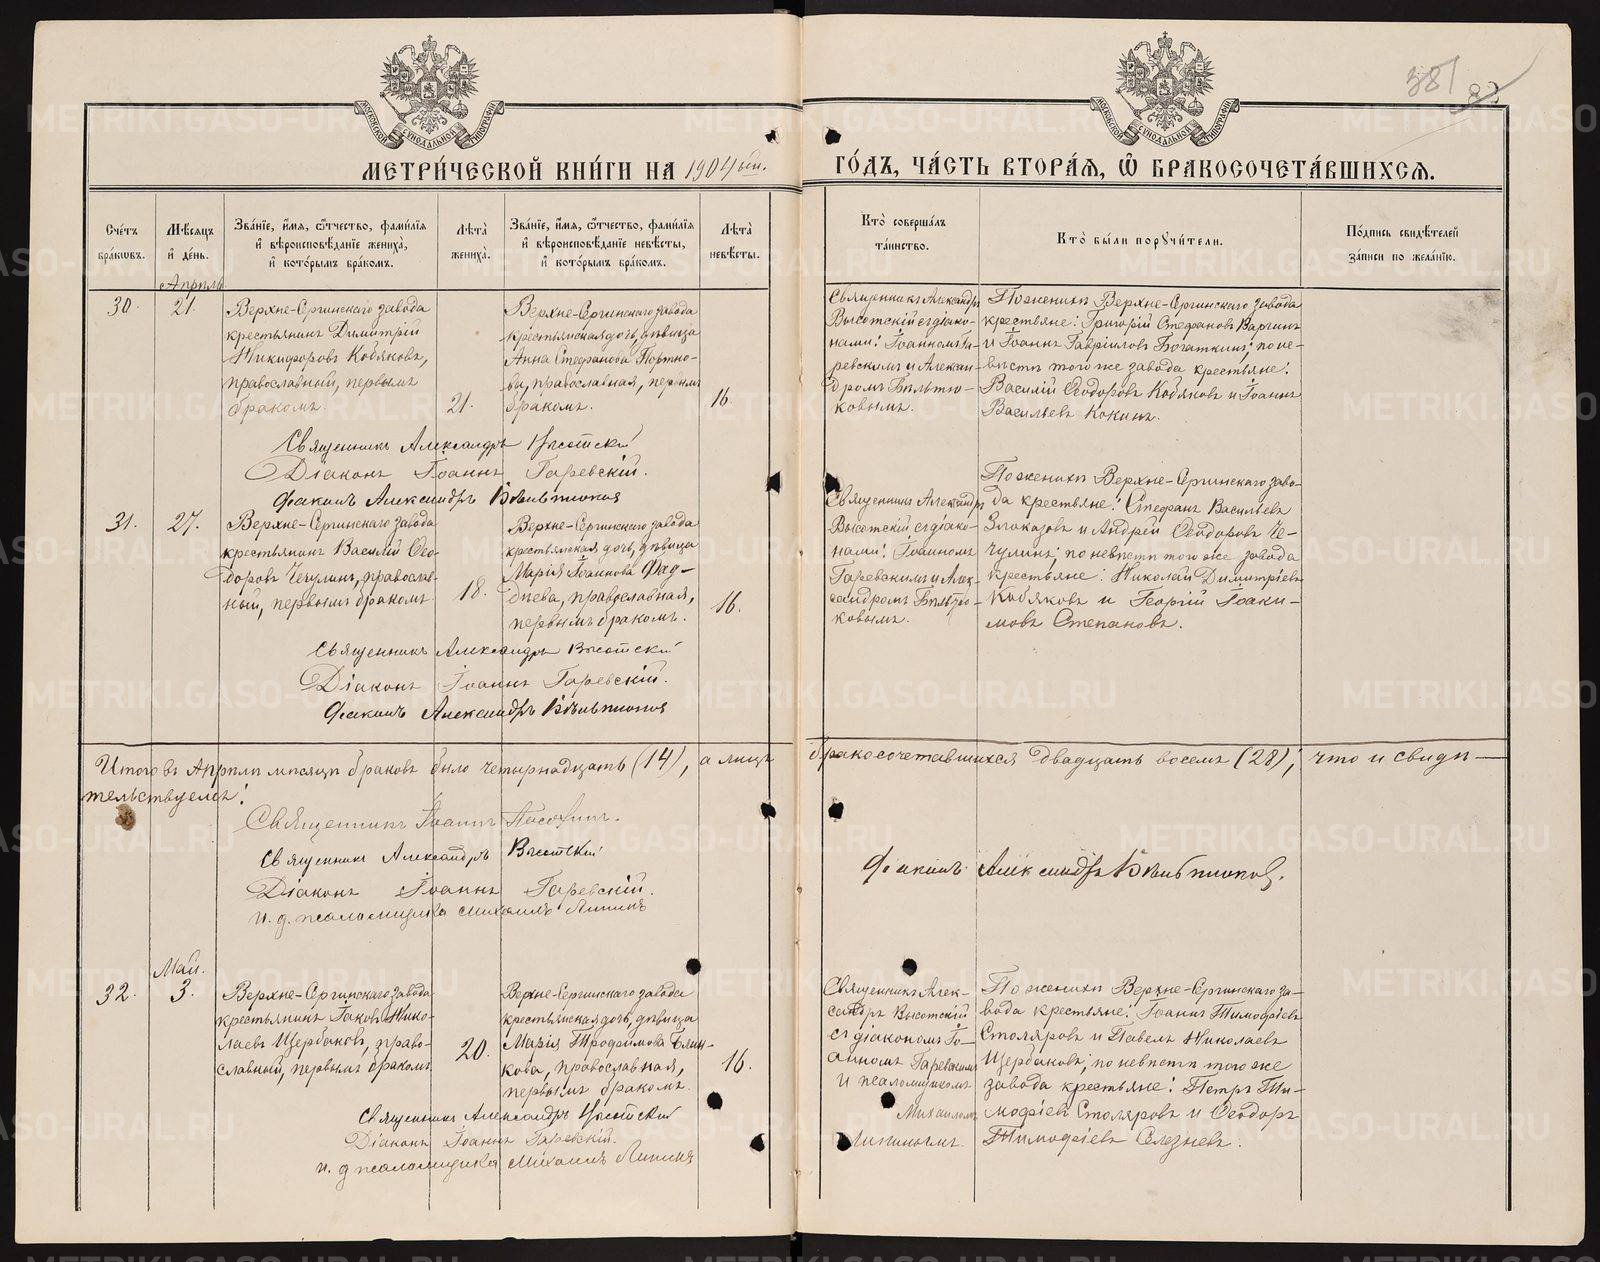 381
83
МЕТРИ́ЧЕСКОЙ КНИ́ГИ НА 1904 ый.
ГО́ДЪ, ЧА́СТЬ ВТОРА́Я, Ѽ БРАКОСОЧЕТА́ВШИХСЯ.
Сче́тъ бра́ковъ.
Мѣ́сяцъ и҆ де́нь.
Зва́нїе, и҆́мя, ѻ҆́тчество, фами́лїя и҆ вѣроисповѣ́данїе жениха̀, и҆ кото́рымъ бра́комъ.
Лѣ́та жениха̀.
Зва́нїе, и҆́мя, ѻ҆́тчество, фами́лїя и҆ вѣроисповѣ́данїе невѣ́сты, и҆ кото́рымъ бра́комъ.
Лѣ́та невѣ́сты.
Кто̀ соверша́лъ та́инство.
Кто̀ бы́ли порꙋчи́тели.
По́дпись свидѣ́телей за́писи по жела́нїю.
Апрѣль
30.
21.
Верхне-Сергинскаго завода
крестьянинъ Димитрій
Никифоровъ Кобяковъ,
православный, первымъ
бракомъ.
21.
Верхне-Сергинскаго завода
крестьянская дочь, дѣвица
Анна Стефанова Портно-
ва, православная, первымъ
бракомъ.
16.
Священникъ Александръ
Высотскій съ діако-
нами: Іоанномъ Га-
ревскимъ и Алексан-
дромъ Бѣльтю-
ковымъ.
По женихѣ Верхне-Сергинскаго завода
крестьяне: Григорій Стефановъ Варгинъ
и Іоаннъ Гавріиловъ Богаткинъ; по не-
вѣстѣ того же завода крестьяне:
Василій Ѳеодоровъ Кобяковъ и Іоаннъ
Васильевъ Кокинъ.
Священникъ Александръ Высотскій
Діаконъ Іоаннъ Гаревскій.
Діаконъ Александръ Бѣльтюковъ
31.
27.
Верхне-Сергинскаго завода
крестьянинъ Василій Ѳео-
доровъ Чечулинъ, православ-
ный, первымъ бракомъ
18.
Верхне-Сергинскаго завода
крестьянская дочь, дѣвица
Марія Іоаннова Фад-
дѣева, православная,
первымъ бракомъ.
16.
Священникъ Александръ
Высотскій съ діако-
нами: Іоанномъ
Гаревскимъ и Алек-
сандромъ Бѣльтю-
ковымъ.
По женихѣ Верхне-Сергинскаго заво-
да крестьяне: Стефанъ Васильевъ
Злоказовъ и Андрей Ѳеодоровъ Че-
чулинъ; по невѣстѣ того же завода
крестьяне: Николай Димитріевъ
Кобяковъ и Георгій Іоаки-
мовъ Степановъ.
Священникъ Александръ Высотскій
Діаконъ Іоаннъ Гаревскій.
Діаконъ Александръ Бѣльтюковъ
Итого въ Апрѣлѣ мѣсяцѣ браковъ было четырнадцать (14), а лицъ бракосочетавшихся двадцать восемь (28); что и свидѣ-
тельствуемъ:
Священникъ Іоаннъ
Священникъ Александръ Высотскій
Діаконъ Іоаннъ Гаревскій.
и. д. псаломщика Михаилъ Липинъ
Діаконъ Александръ Бѣльтюковъ.
Май.
32.
3.
Верхне-Сергинскаго завода
крестьянинъ Іаковъ Нико-
лаевъ Щербаковъ, право-
славный, первымъ бракомъ
20.
Верхне-Сергинскаго завода
крестьянская дочь, дѣвица
Марія Трофимова Блин-
кова, православная,
первымъ бракомъ.
16.
Священникъ Алек-
сандръ Высотскій
съ діакономъ Іо-
анномъ Гаревскимъ
и псаломщикомъ
Михаиломъ
Липинымъ.
По женихѣ Верхне-Сергинскаго за-
вода крестьяне: Іоаннъ Тимофѣевъ
Столяровъ и Павелъ Николаевъ
Щербаковъ; по невѣстѣ того же
завода крестьяне: Петръ Ти-
мофѣевъ Столяровъ и Ѳеодоръ
Тимофѣевъ Селезневъ.
Священникъ Александръ Высотскій
Діаконъ Іоаннъ Гаревскій.
и. д. псаломщика Михаилъ Липинъ
METRIKI.GASO-URAL.RU